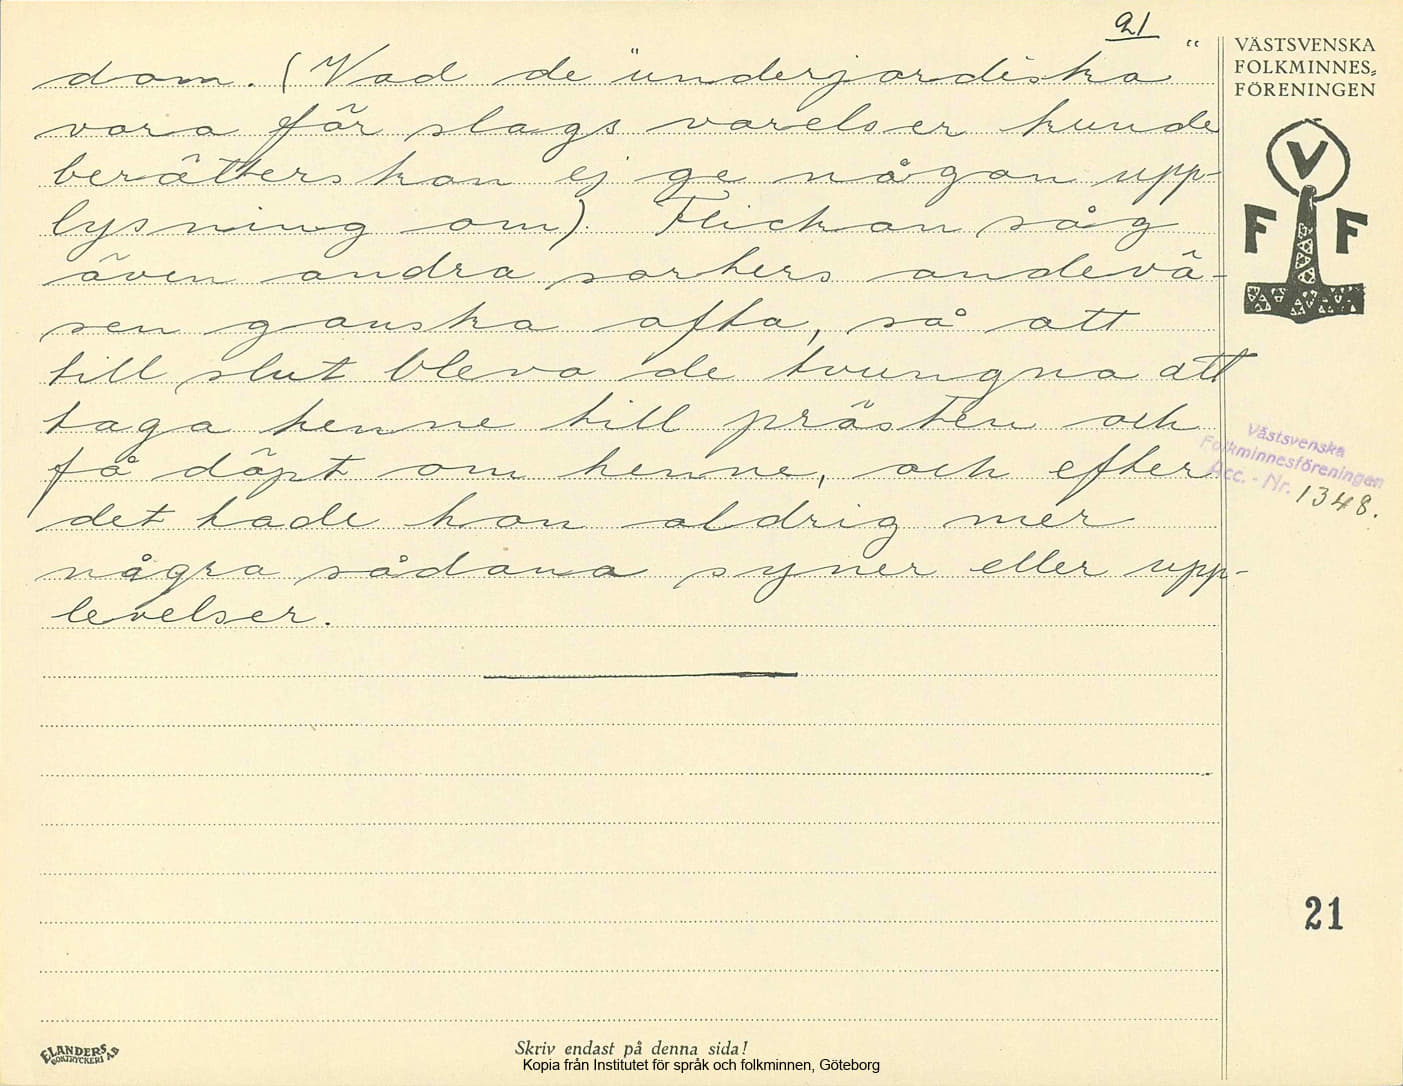 21
dom. (Vad de "underjordiska"
vora för slags varelser kunde
berätterskan ej ge någon upp-
lysning om). Flickan såg
även andra sorters andevä-
sen ganska ofta, så att
till slut blevo de tvungna att
taga henne till prästen och
få döpt om henne, och efter
det hade hon aldrig mer
några sådana syner eller upp-
levelser.
VÄSTSVENSKA
FOLKMINNES-
FÖRENINGEN
V
F F
Västsvenska
Folkminnesföreningen
Acc. - Nr. 1348.
21
ELANDERS
BOKTRYCKERI AB
Skriv endast på denna sida!
Kopia från Institutet för språk och folkminnen, Göteborg